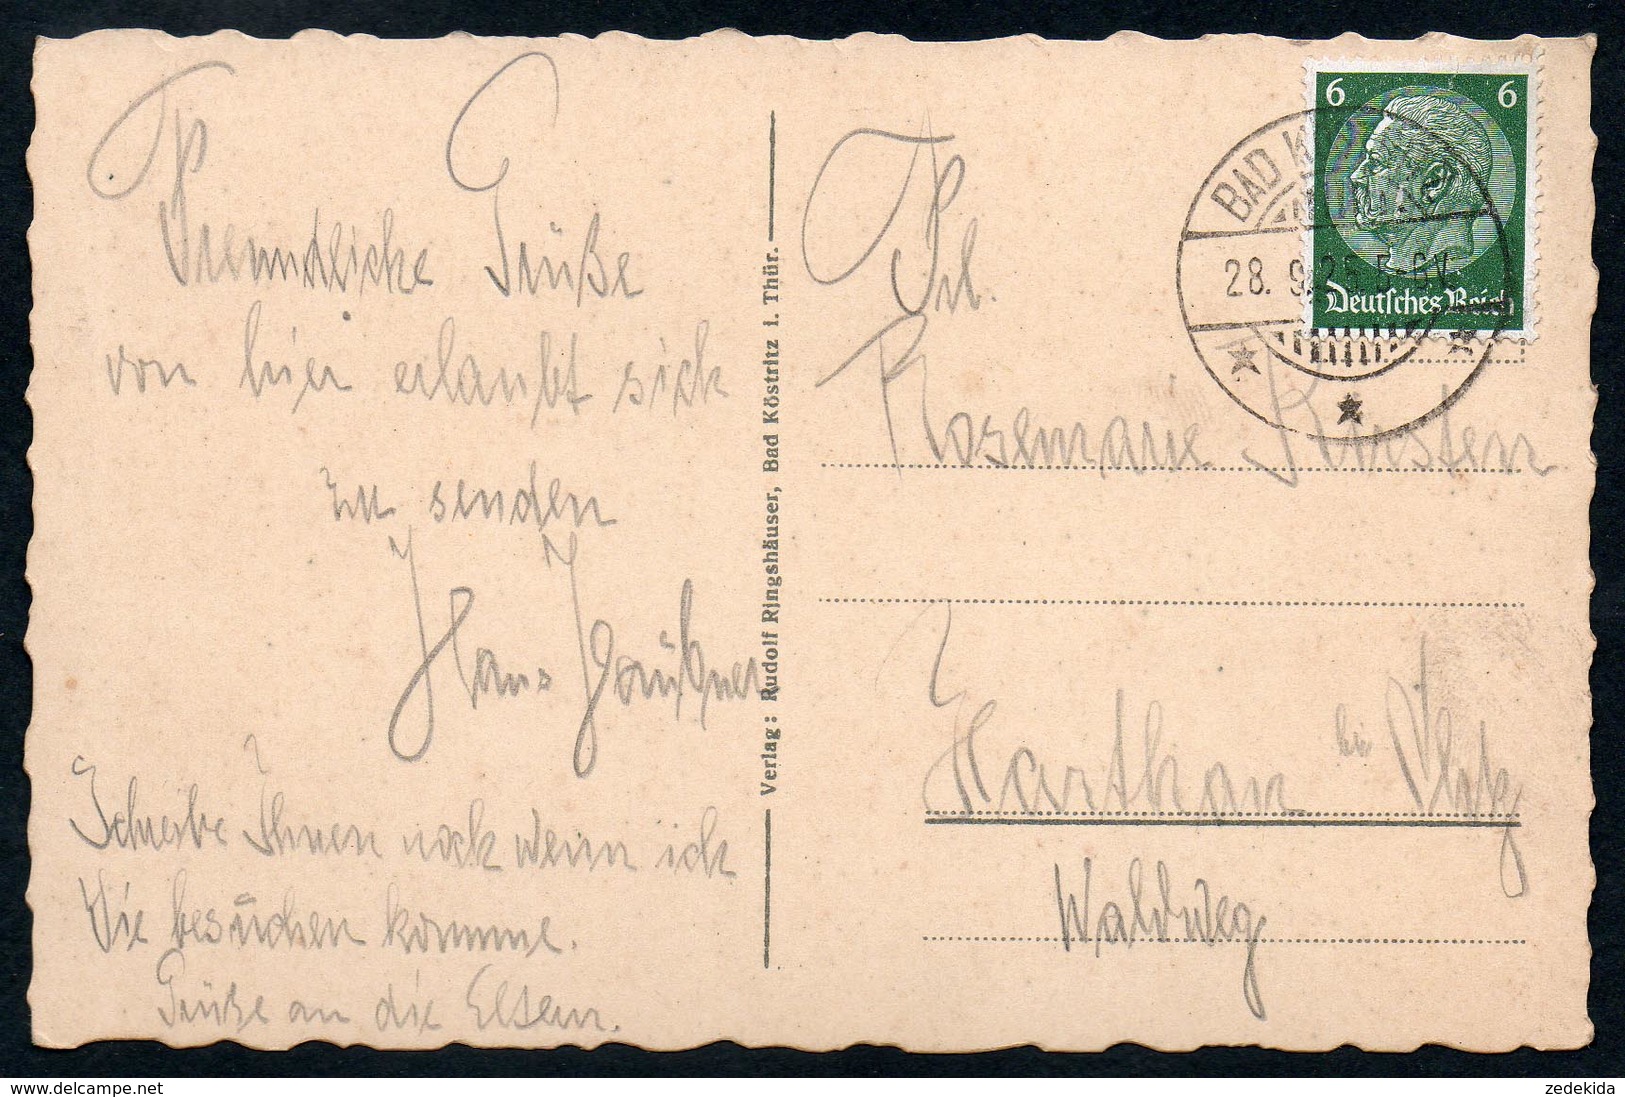 Freundliche Grüße
von hier erlaubt sich
zu senden
Hans
Schreibe Ihnen noch wenn ich
Sie besuchen komme.
Grüße an die Eltern.
Verlag: Rudolf Ringshäuser, Bad Köstritz i. Thür.
6 6
Deutsches Reich
BAD
28. 9.
Frl.
Rosemarie Kirsten
Harthau bei
Waldweg
www.delcampe.net
zedekida